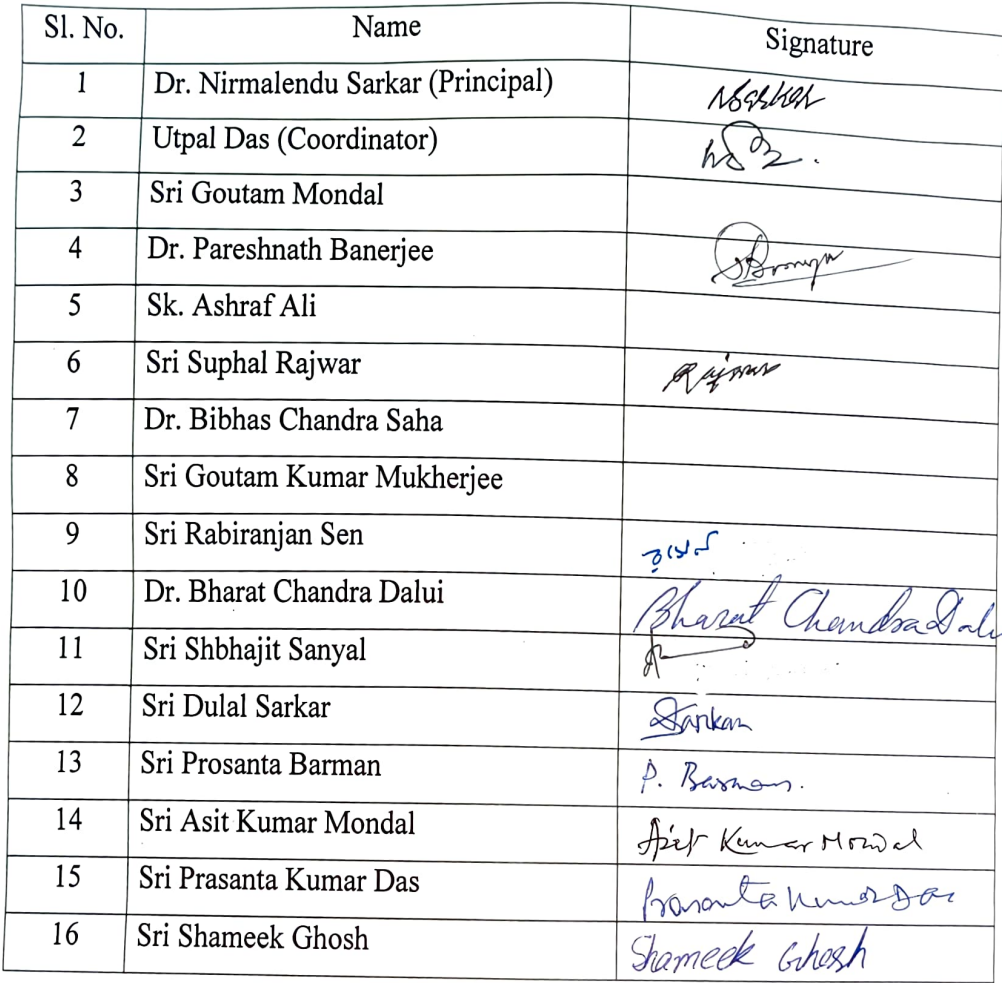 Sl. No. Name Signature
1 Dr. Nirmalendu Sarkar (Principal) NSarkar
2 Utpal Das (Coordinator)
3 Sri Goutam Mondal
4 Dr. Pareshnath Banerjee
5 Sk. Ashraf Ali
6 Sri Suphal Rajwar Rajwar
7 Dr. Bibhas Chandra Saha
8 Sri Goutam Kumar Mukherjee
9 Sri Rabiranjan Sen
10 Dr. Bharat Chandra Dalui Bharat Chandra Dalui
11 Sri Shbhajit Sanyal
12 Sri Dulal Sarkar DSarkar
13 Sri Prosanta Barman P. Barman.
14 Sri Asit Kumar Mondal Asit Kumar Mondal
15 Sri Prasanta Kumar Das Prasanta Kumar Das
16 Sri Shameek Ghosh Shameek Ghosh